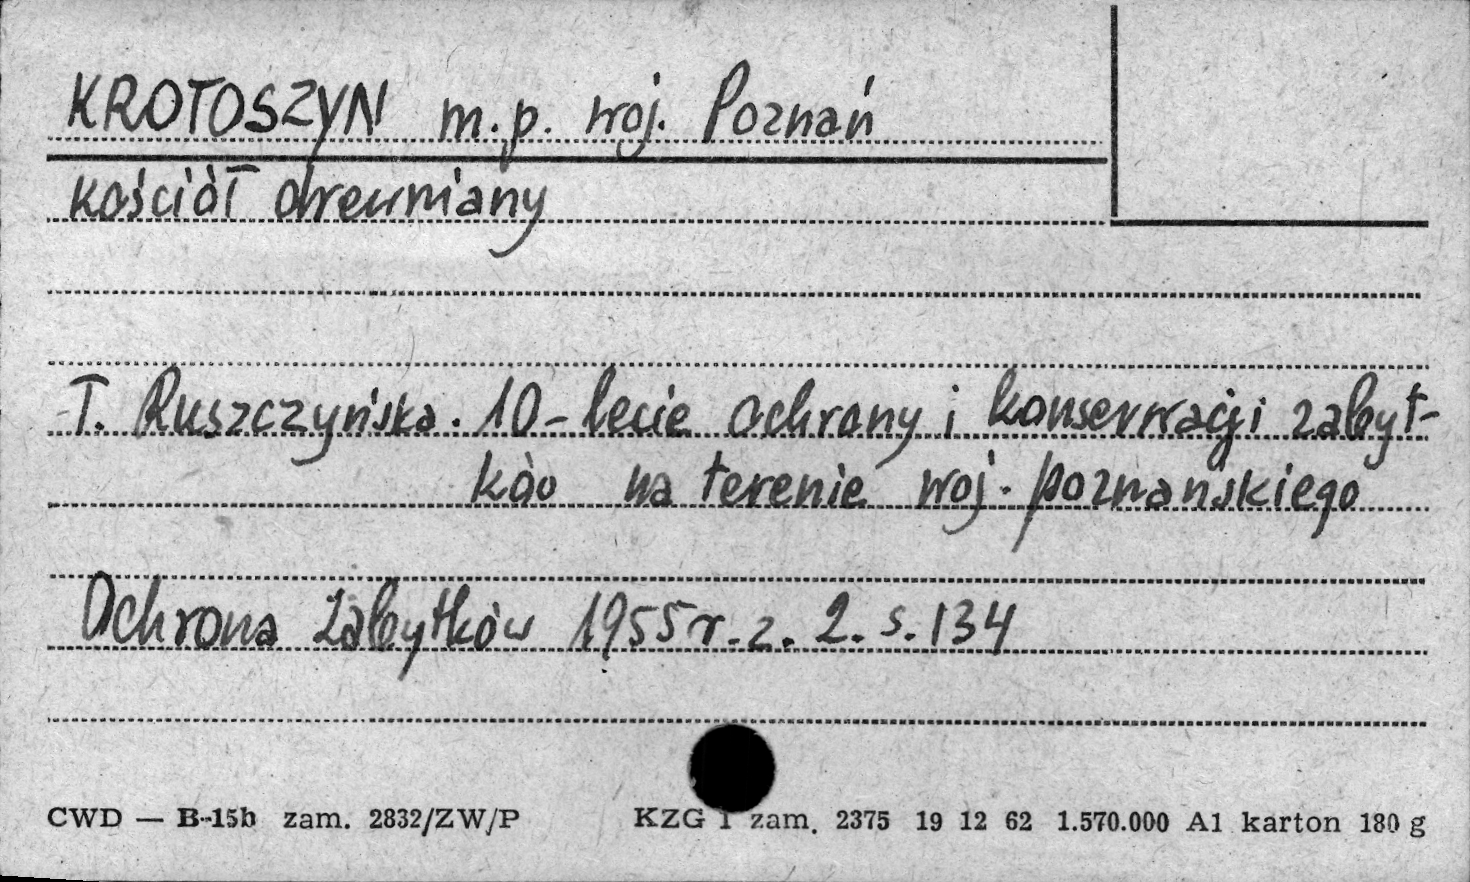 KROTOSZYN m.p. woj. Poznań
kościół drewniany
T. Ruszczyńska. 10-lecie ochrony i konserwacji zabyt-
ków na terenie woj. poznańskiego
Ochrona Zabytków 1955 r. z. 2. s. 134
CWD — B-15b zam. 2832/ZW/P KZG 1 zam. 2375 19 12 62 1.570.000 A1 karton 180 g